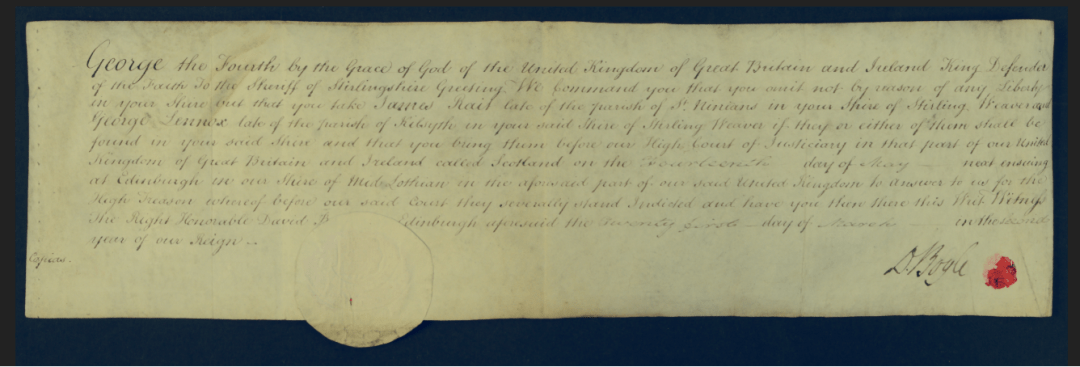 George the Fourth by the Grace of God of the United Kingdom of Great Britain and Ireland King Defender
of the Faith To the Sheriff of Stirlingshire Greeting We Command you that you omit not by reason of any Liberty
in your Shire but that you take James Rait late of the parish of St. Ninians in your Shire of Stirling Weaver and
George Lennox late of the parish of Kilsyth in your said Shire of Stirling Weaver if they or either of them shall be
found in your said Shire and that you bring them before our High Court of Justiciary in that part of our United
Kingdom of Great Britain and Ireland called Scotland on the Fourteenth day of May next ensuing
at Edinburgh in our Shire of Mid-Lothian in the aforesaid part of our said United Kingdom to answer to us for the
High Treason whereof before our said Court they severally stand Indicted and have you then there this Writ Witness
The Right Honorable David B Edinburgh aforesaid the twenty first day of March in the second
year of our Reign
Copied.
D. Boyle